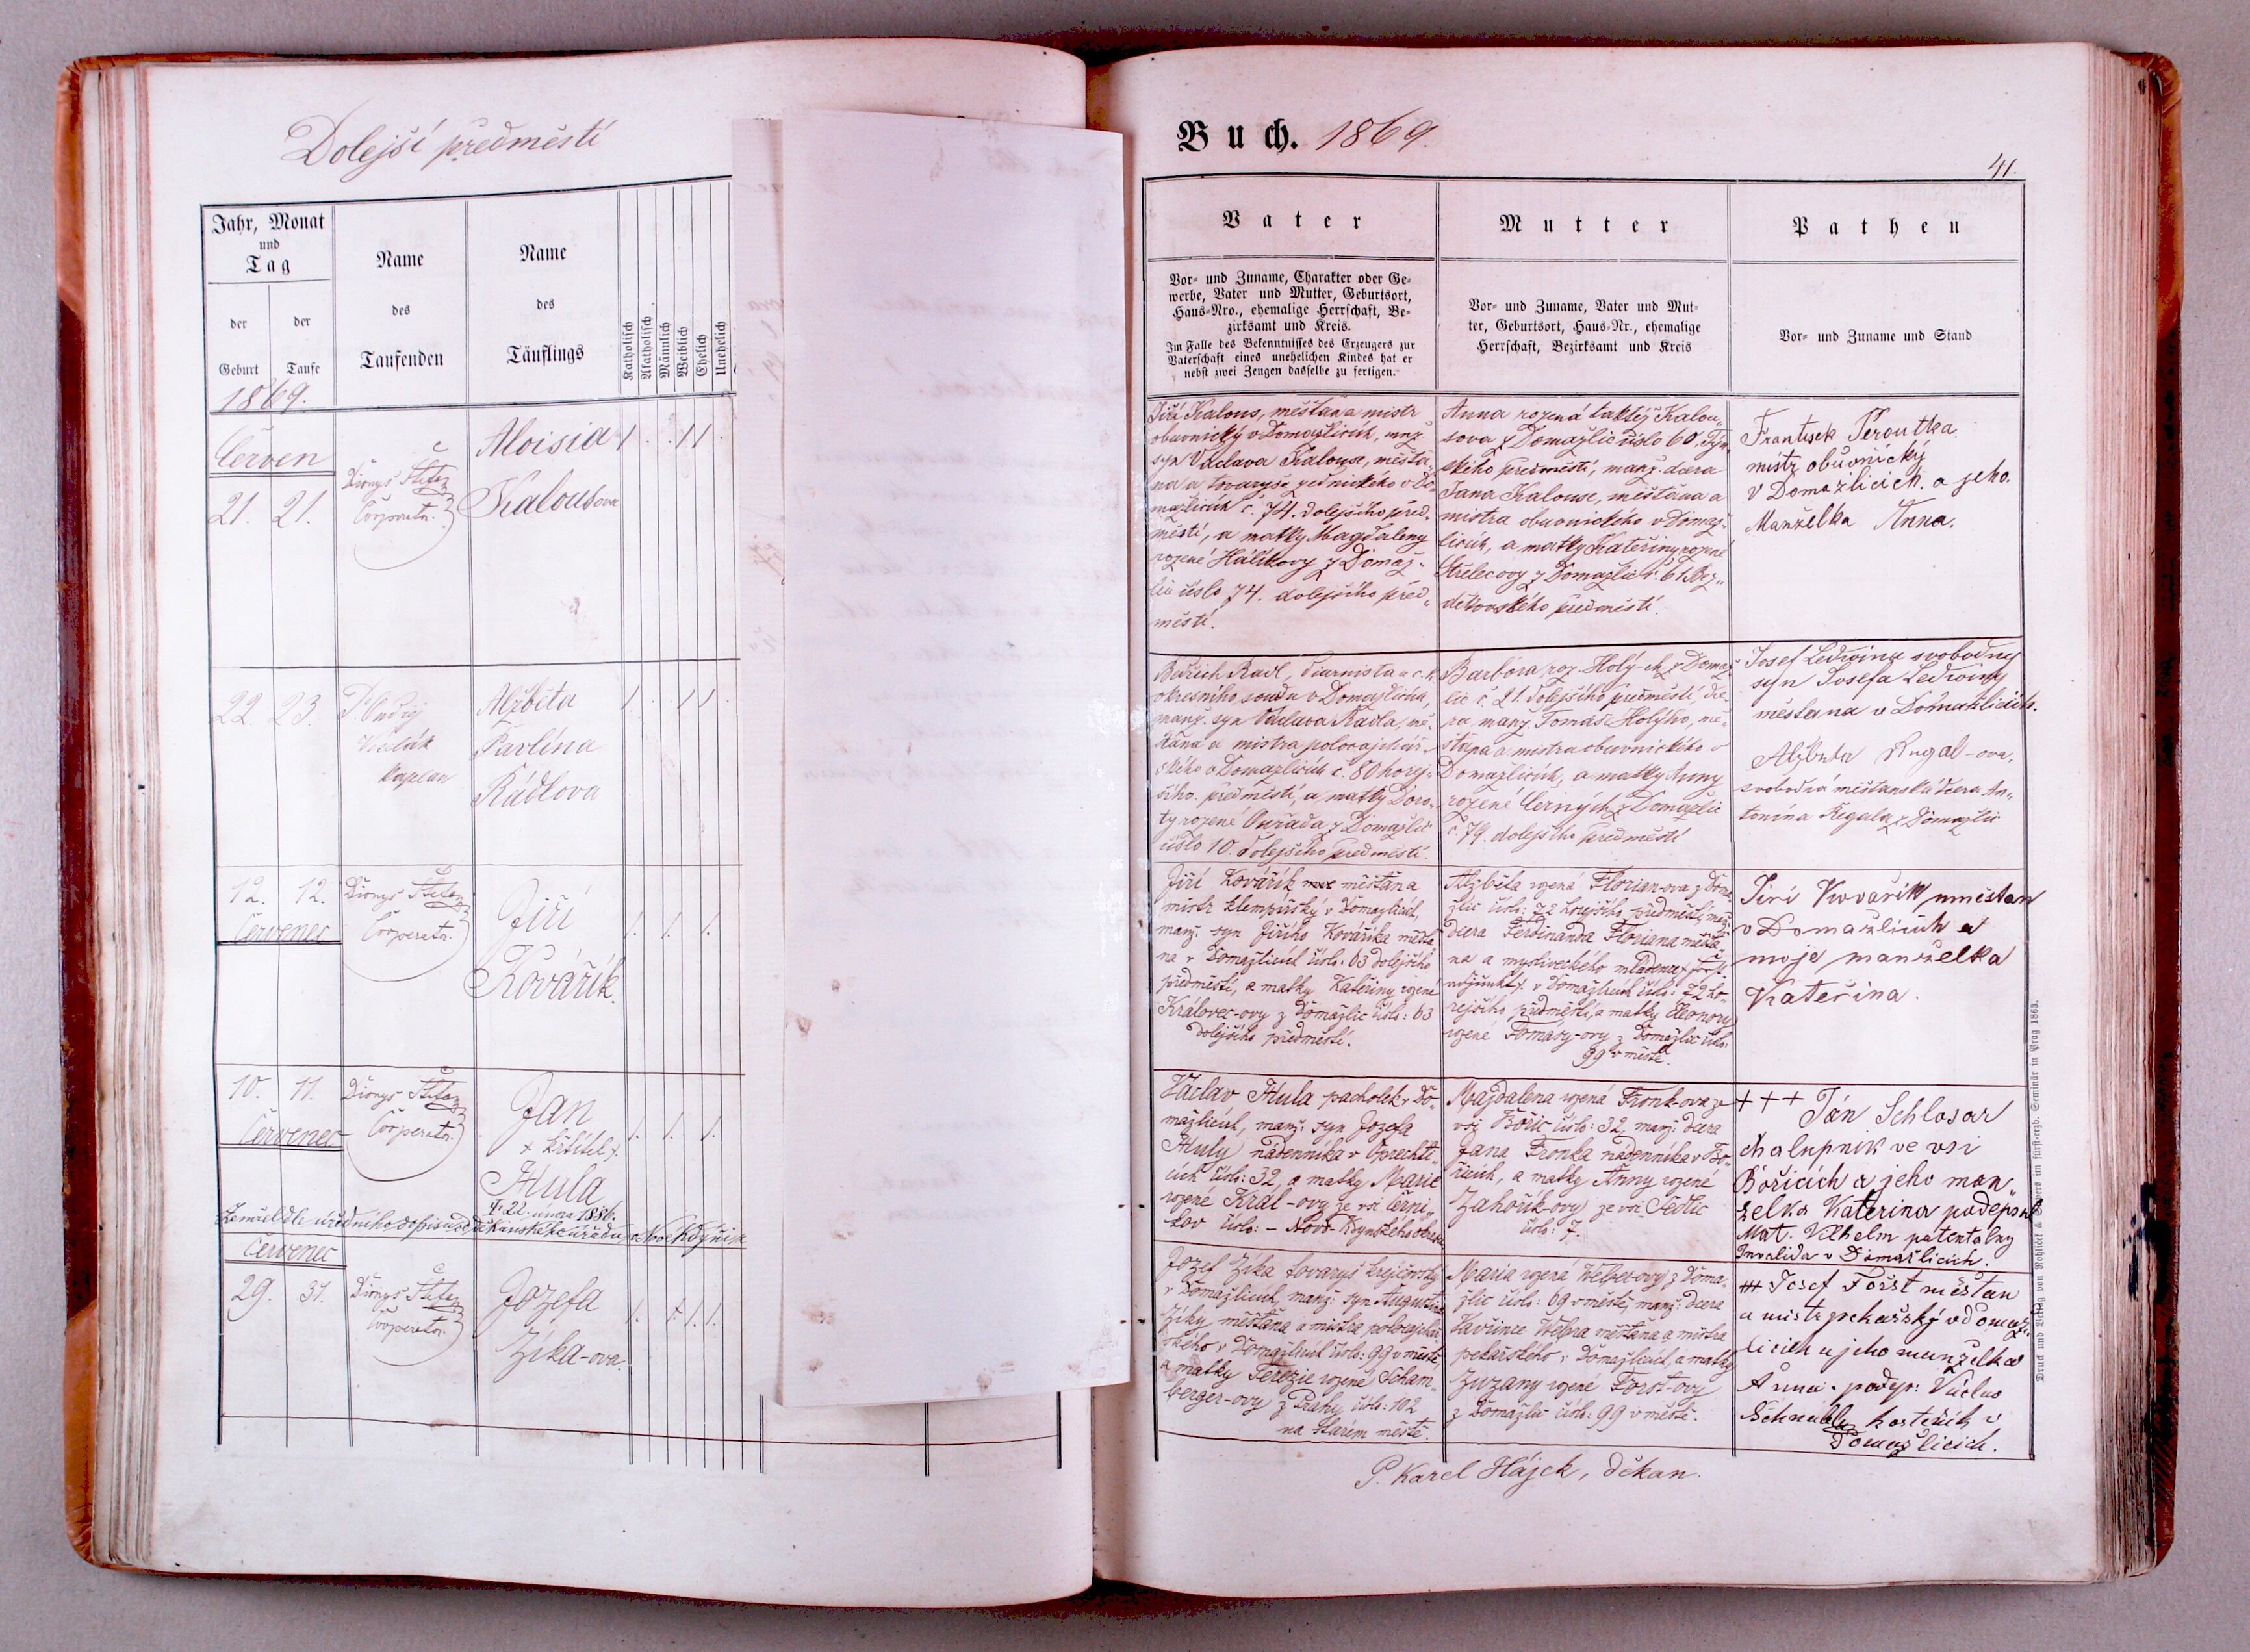 Dolejší předměstí
Jahr, Monat
und
Tag
der
Geburt
der
Taufe
Name
des
Taufenden
Name
des
Täuflings
Katholisch
Akatholisch
Männlich
Weiblich
Ehelich
Unehelich
1869.
Červen
21. 21.
Dionys
Cooperator.
Aloisia
Kalousova
22. 23.
P. Ondřej
Kaplan
Alžběta
Pavlína
Rádlova
12. 12.
Červenec
Dionys
Cooperator.
Jiří
Kovářík.
10. 11.
Červenec
Dionys
Cooperator.
Jan
+ křtitel +.
Hula
Červenec
29. 31.
Dionys
Cooperator.
Jozefa
Zíka-ova.
Buch. 1869.
41.
Vater
Vor- und Zuname, Charakter oder Ge-
werbe, Vater und Mutter, Geburtsort,
Haus-Nro., ehemalige Herrschaft, Be-
zirksamt und Kreis.
Im Falle des Bekenntnisses des Erzeugers zur
Vaterschaft eines unehelichen Kindes hat er
nebst zwei Zeugen dasselbe zu fertigen.
Mutter
Vor- und Zuname, Vater und Mut-
ter, Geburtsort, Haus-Nr., ehemalige
Herrschaft, Bezirksamt und Kreis
Pathen
Vor- und Zuname und Stand
Jiří Kalous, měšťan a mistr
obuvnický v Domažlicích, manž.
syn Václava Kalouse, měšťa-
na a tovaryše zednického v Do-
mažlicích č. 74. dolejšího před-
městí, a matky Magdaleny
rozené Hálíkovy z Domaž-
lic číslo 74. dolejšího před-
městí.
Anna rozená taktéž Kalou-
sova z Domažlic číslo 60. Týn-
ského předměstí, manž. dcera
Jana Kalouse, měšťana a
mistra obuvnického v Domaž-
licích, a matky Kateřiny rozené
Střelcovy z Domažlic č. 61 Bez-
děkovského předměstí.
František Peroutka
mistr obuvnický
v Domažlicích. a jeho.
Manželka Anna.
Radl, diurnista u c. k.
okresního soudu v Domažlicích,
manž. syn Václava Radla, mě-
šťana a mistra
ského v Domažlicích č. 80 hořej-
šího předměstí, a matky Doro-
ty rozené z Domažlic
číslo 10. dolejšího předměstí.
Barbora roz. Holý-ch z Domaž-
lic č. 21. dolejšího předměstí, dce-
ra manž. Tomáše Holýho, mě-
šťana a mistra obuvnického v
Domažlicích, a matky Anny
rozené Černých z Domažlic
č. 79. dolejšího předměstí
Josef Ledvina svobodný
syn Josefa Ledviny
měšťana v Domažlicích.
Alžběta Regal-ova,
svobodná měšťanská dcera An-
tonína Regala z Domažlic
Jiří Kovářík měšťan a
mistr klempířský v Domažlicích,
manž. syn Jiřího Kováříka měšťa-
na v Domažlicích číslo: 63 dolejšího
předměstí, a matky Kateřiny rozené
Královec-ovy z Domažlic číslo: 63
dolejšího předměstí.
Alžběta rozená Florian-ova z Doma-
žlic číslo: 72 hořejšího předměstí, manž.
dcera Ferdinanda Floriana měšťa-
na a mysliveckého mládence
v Domažlicích číslo: 72 ho-
řejšího předměstí, a matky Eleonory
rozené Tomásy-ovy z Domažlic číslo:
99 v městě.
Jiří Kovařík měšťan
v Domažlicích a
moje manželka
Kateřina.
Václav Hula pacholek v Do-
mažlicích, manž. syn Jozefa
Huly nádenníka v
cích číslo: 32, a matky Marie
rozené Král-ovy ze vsi Černi-
kov číslo: –
Majdalena rozená Fronk-ova ze
vsi Bořic číslo: 32, manž: dcera
Jana Fronka nádenníka v Bo-
řicích, a matky Anny rozené
Zahořík-ovy ze vsi Sedlic
číslo: 7.
+++ Ján Schlosar
chalupnik ve vsi
Bořicích a jeho man-
želka Kateřina podepsal
Mat. Vilhelm patentalny
Invalida v Domažlicích.
Jozef Zíka tovaryš krejčovský
v Domažlicích, manž: syn Augustina
Zíky měšťana a mistra
ského v Domažlicích číslo: 99 v městě,
a matky Terezie rozené Scham-
berger-ovy z Prahy číslo: 102
na starém městě.
Maria rozená Weber-ovy z Doma-
žlic číslo: 69 v městě, manž: dcera
Vavřince Webra měšťana a mistra
pekařského v Domažlicích, a matky
Zuzany rozené Forst-ovy
z Domažlic číslo: 99 v městě.
+++ Josef Foršt měšťan
a mistr pekařský v Domaž-
licích a jeho manželka
Anna. podep: Václav
kostelník v
Domažlicích.
P. Karel Hájek, děkan.